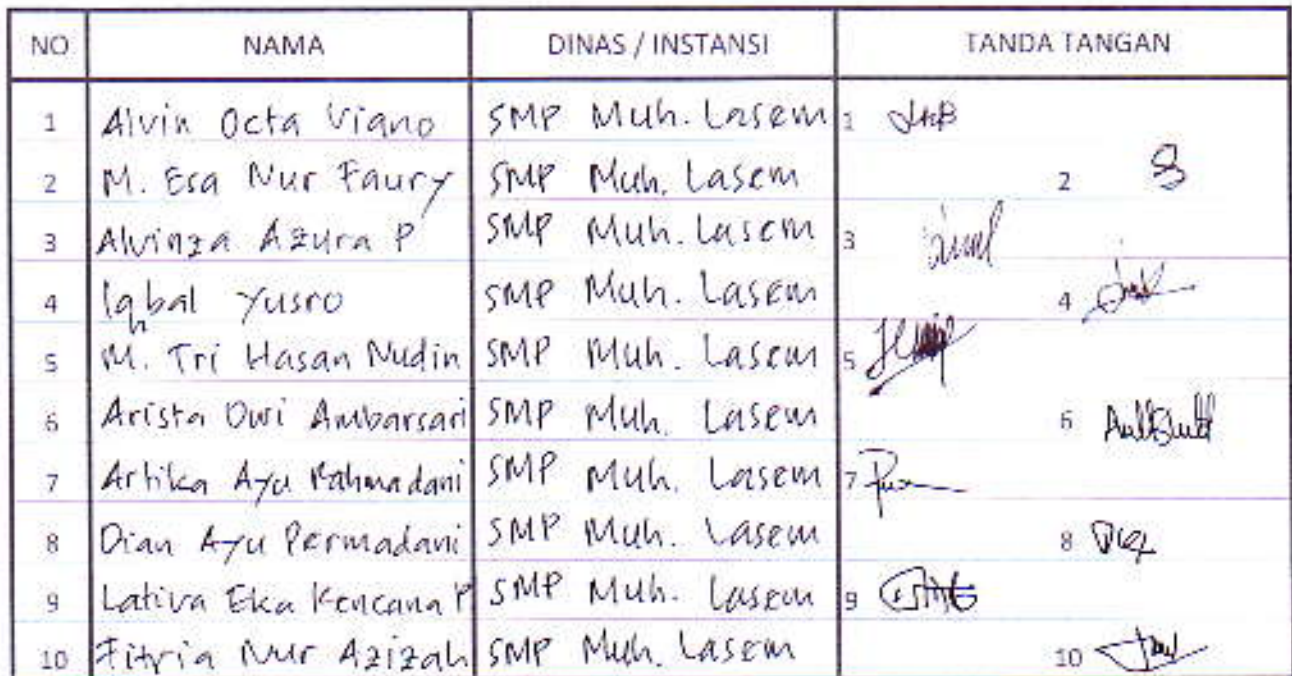 NO NAMA DINAS / INSTANSI TANDA TANGAN
1 Alvin Octa Viano SMP Muh. Lasem 1
2 M. Esa Nur Faury SMP Muh. Lasem 2
3 Alvinza Azura P SMP Muh. Lasem 3
4 Iqbal Yusro SMP Muh. Lasem 4
5 M. Tri Hasan Nudin SMP Muh. Lasem 5
6 Arista Dwi Ambarsari SMP Muh. Lasem 6
7 Artika Ayu Rahmadani SMP Muh. Lasem 7
8 Dian Ayu Permadani SMP Muh. Lasem 8
9 Lativa Eka Kencana P SMP Muh. Lasem 9
10 Fitria Nur Azizah SMP Muh. Lasem 10